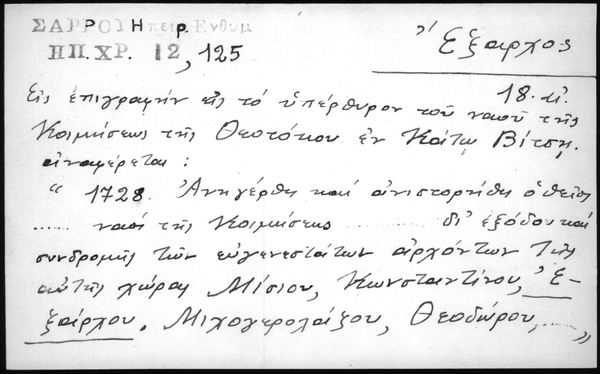 ΣΑΡΡΟΥ Ηπειρ. Ενθυμ
ΗΠ.ΧΡ. 12, 125
Ἔξαρχος
18. αἰ.
Εἰς ἐπιγραφήν εἰς τό ὑπέρθυρον τοῦ ναοῦ τῆς
Κοιμήσεως τῆς Θεοτόκου ἐν Κάτω Βίτσῃ,
ἀναφέρεται:
"1728. Ἀνηγέρθη καί ἀνιστορήθη ὁ θεῖος
...... ναός τῆς Κοιμήσεως ............ δι' ἐξόδου καί
συνδρομῆς τῶν εὐγενεστάτων ἀρχόντων τῆς
αὐτῆς χώρας Μίσιου, Κωνσταντίνου, Ἐ-
ξάρχου, Μιχογερολάξου, Θεοδώρου, ......"